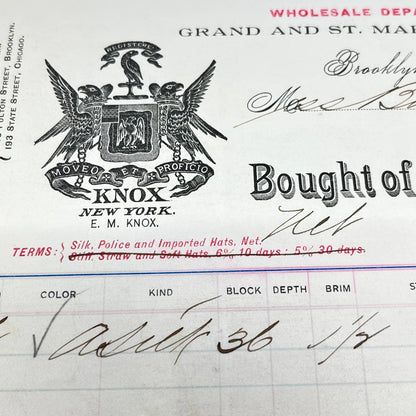 WHOLESALE DEPA
GRAND AND ST. MAR
FULTON STREET, BROOKLYN.
193 STATE STREET, CHICAGO.
REGISTERE
Brooklyn
Moss
MOVEO ET PROFICIO
KNOX
NEW YORK.
E. M. KNOX.
Bought of
Net
TERMS: Silk, Police and Imported Hats, Net.
Stiff, Straw and Soft Hats, 6% 10 days; 5% 30 days.
COLOR KIND BLOCK DEPTH BRIM ST
A Silk 36 1 1/2